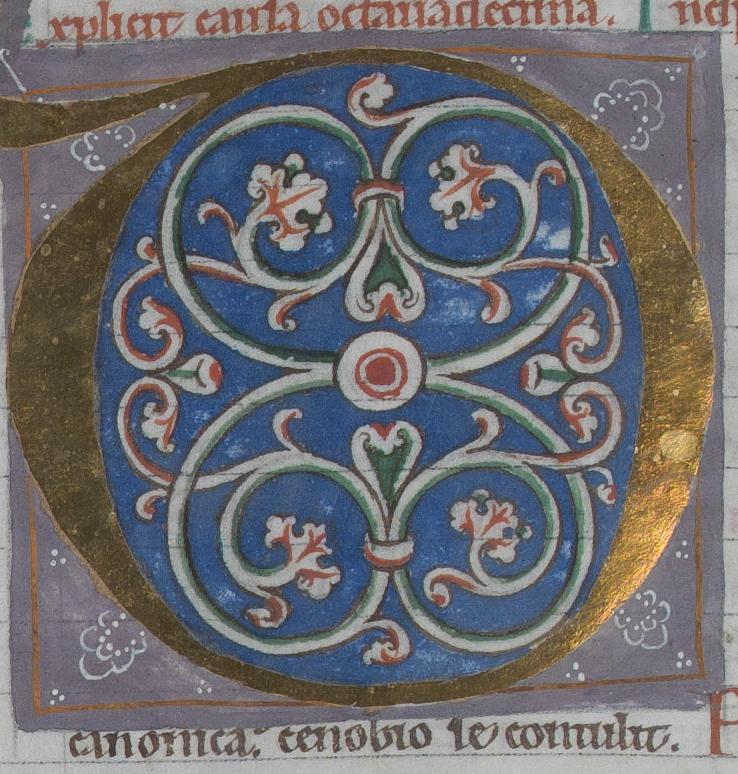 xplicit causa octauadecima. Incip
D
canonica. cenobio se contulit. P